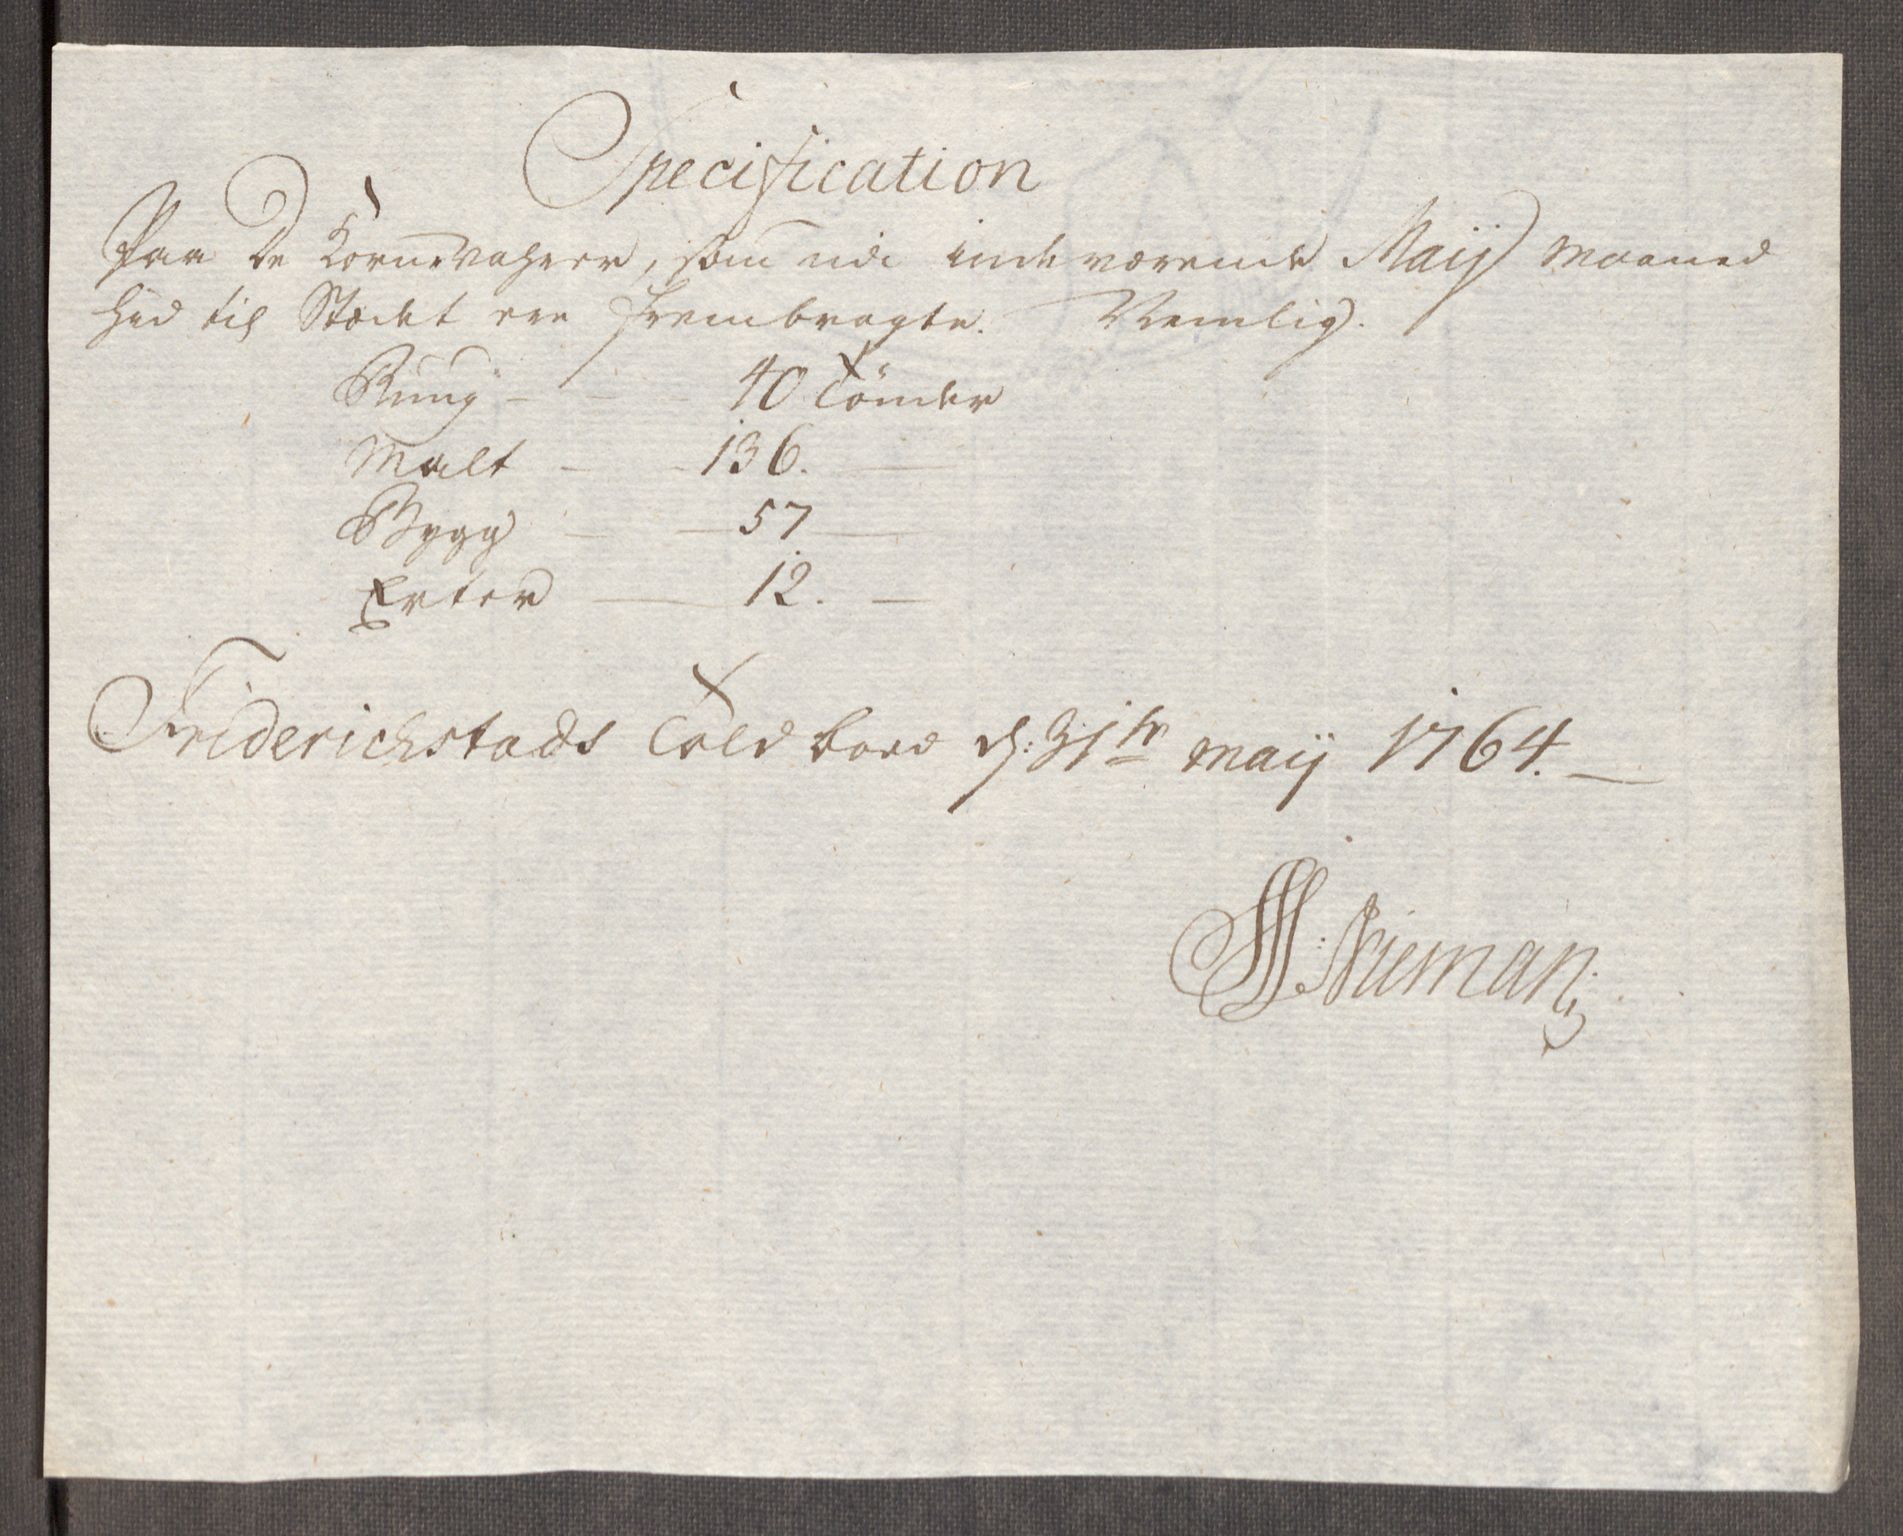 Specification
Paa De Kornevahrer, som udi indeværende Maij Maaned
hid til Stædet ere frembragte. Nemlig.
Rug - - 40 Tönder
Malt - - 136. -
Bygg - - 57 -
Erter - 12. -
Friderichstads Told boed d: 31te Maij 1764. -
Nieman